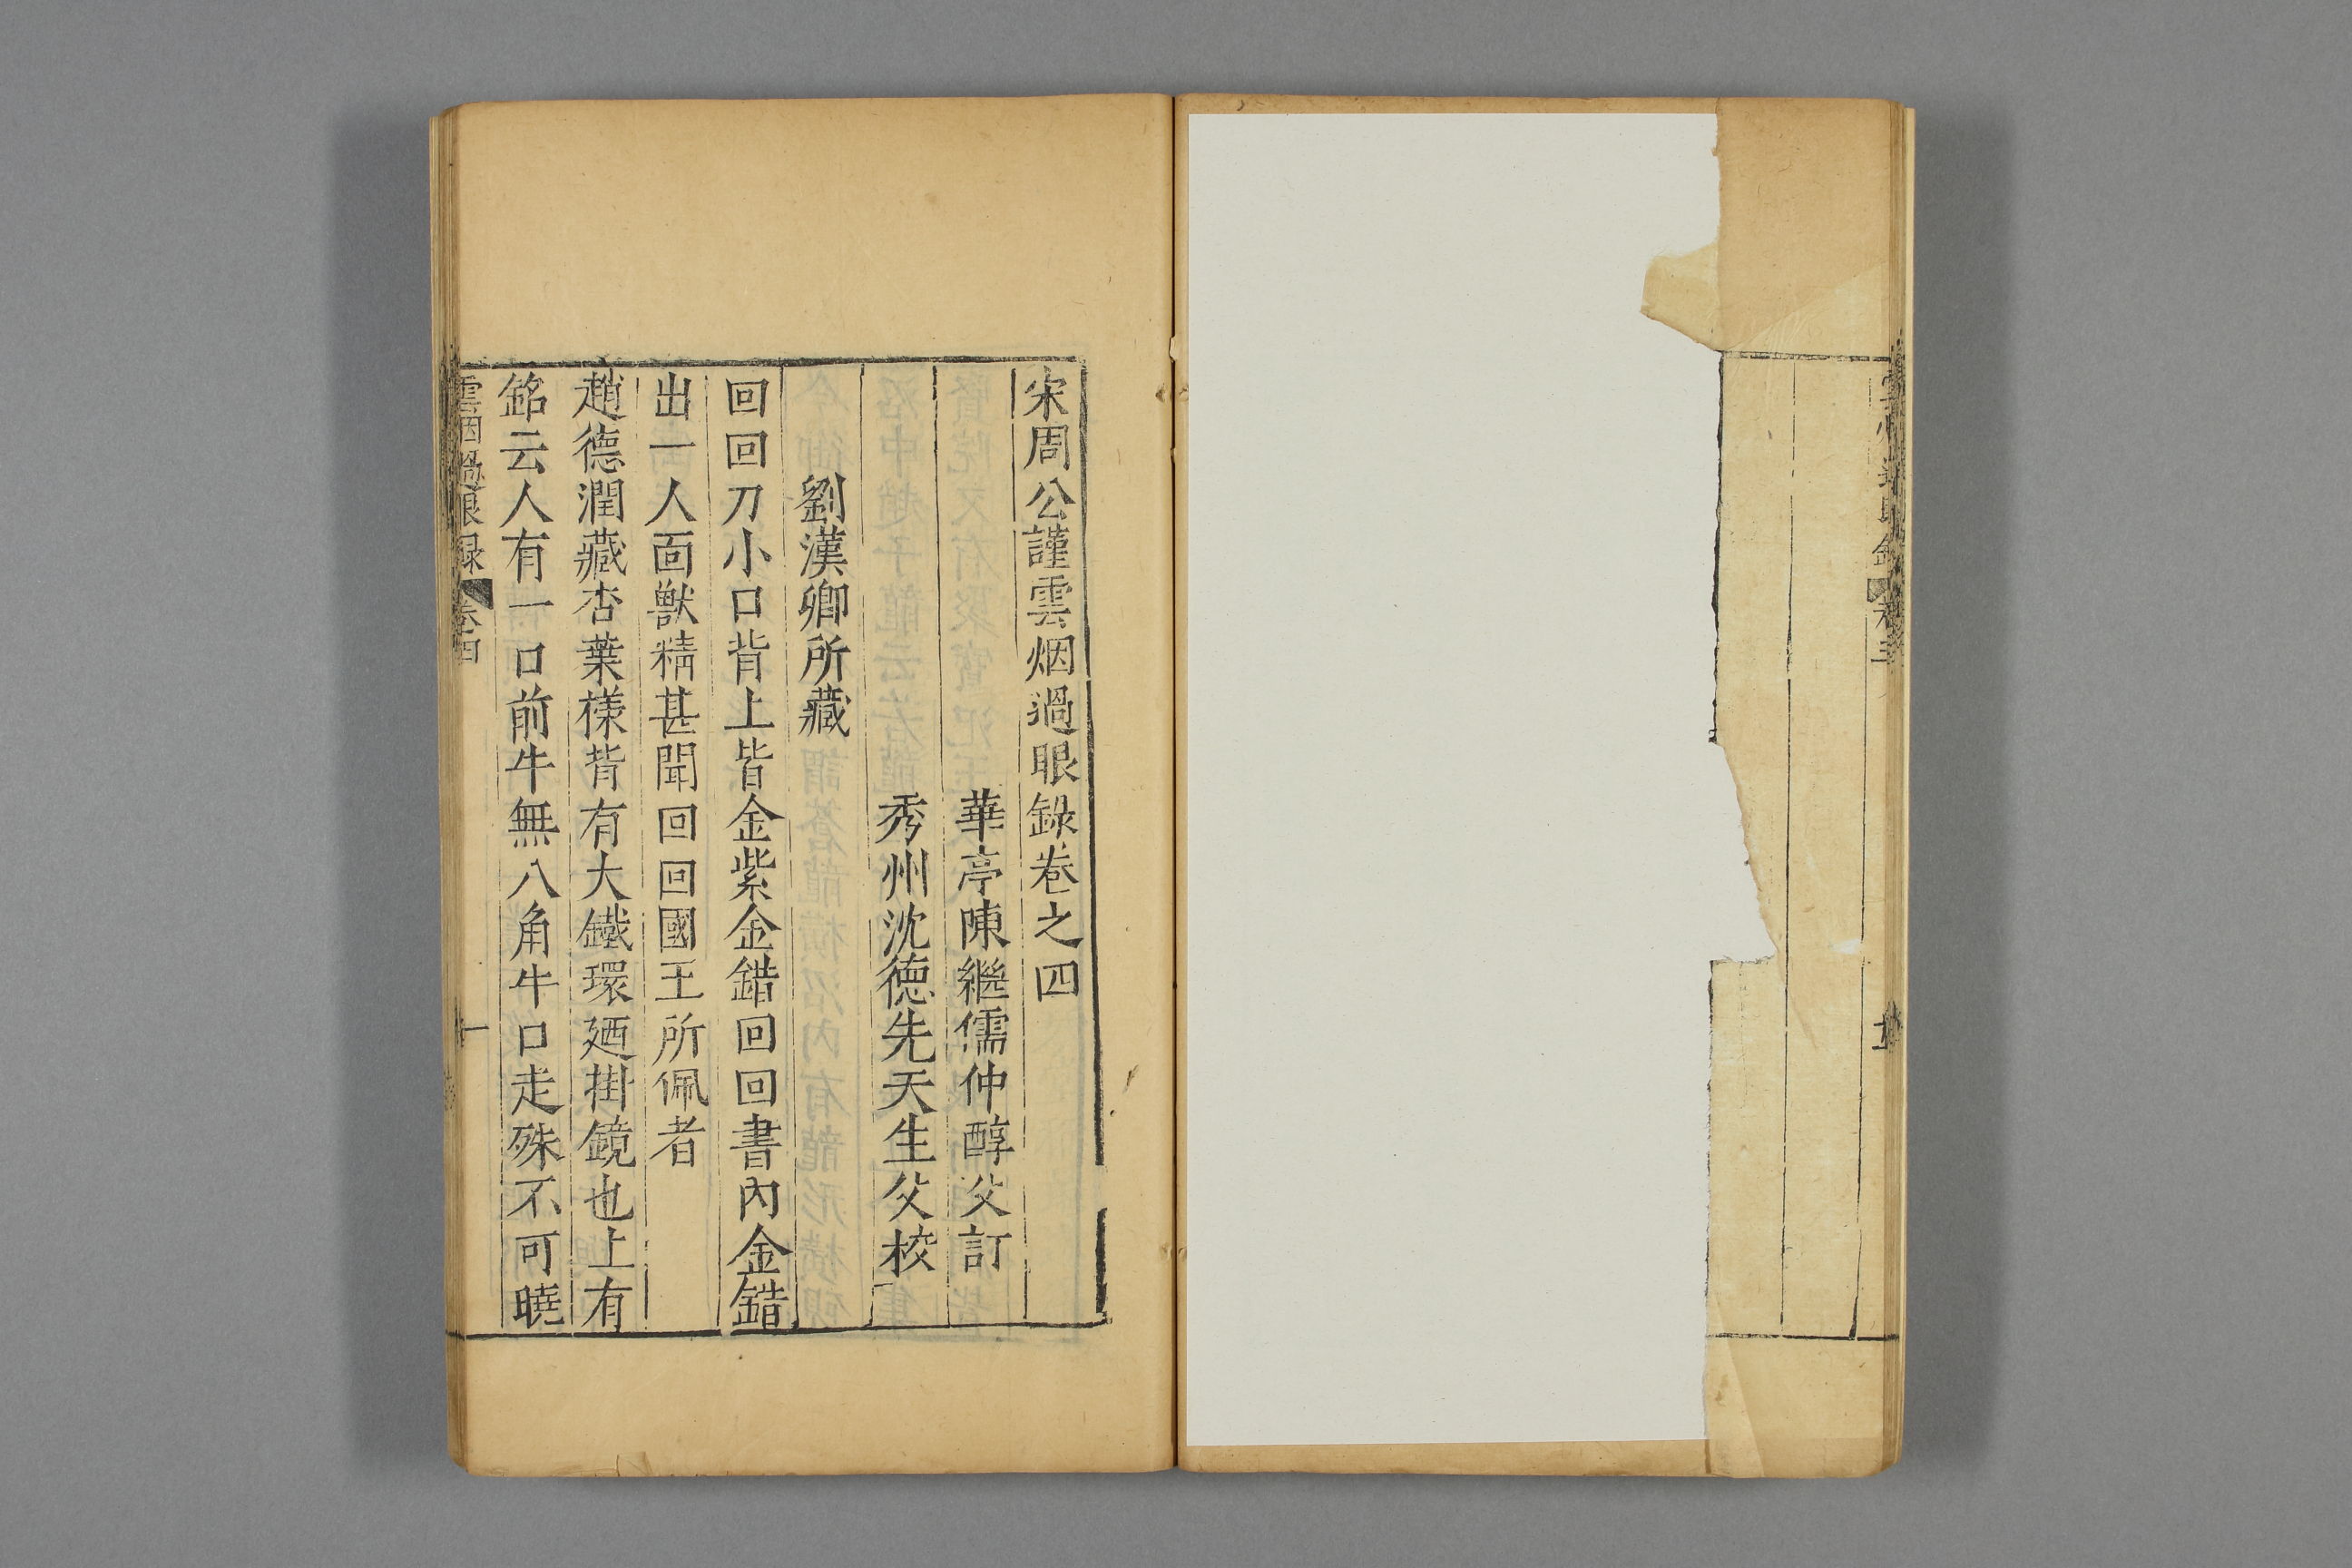 宋周公謹雲烟過眼錄卷之四
華亭陳繼儒仲醇父訂
秀州沈德先天生父校
劉漢卿所藏
回回刀小口背上皆金紫金錯回回書內金錯
出一人面獸精甚聞回回國王所佩者
趙德潤藏杏葉樣背有大鐵環廼掛鏡也上有
銘云人有一口前牛無八角牛口走殊不可曉
雲烟過眼錄 卷四
一